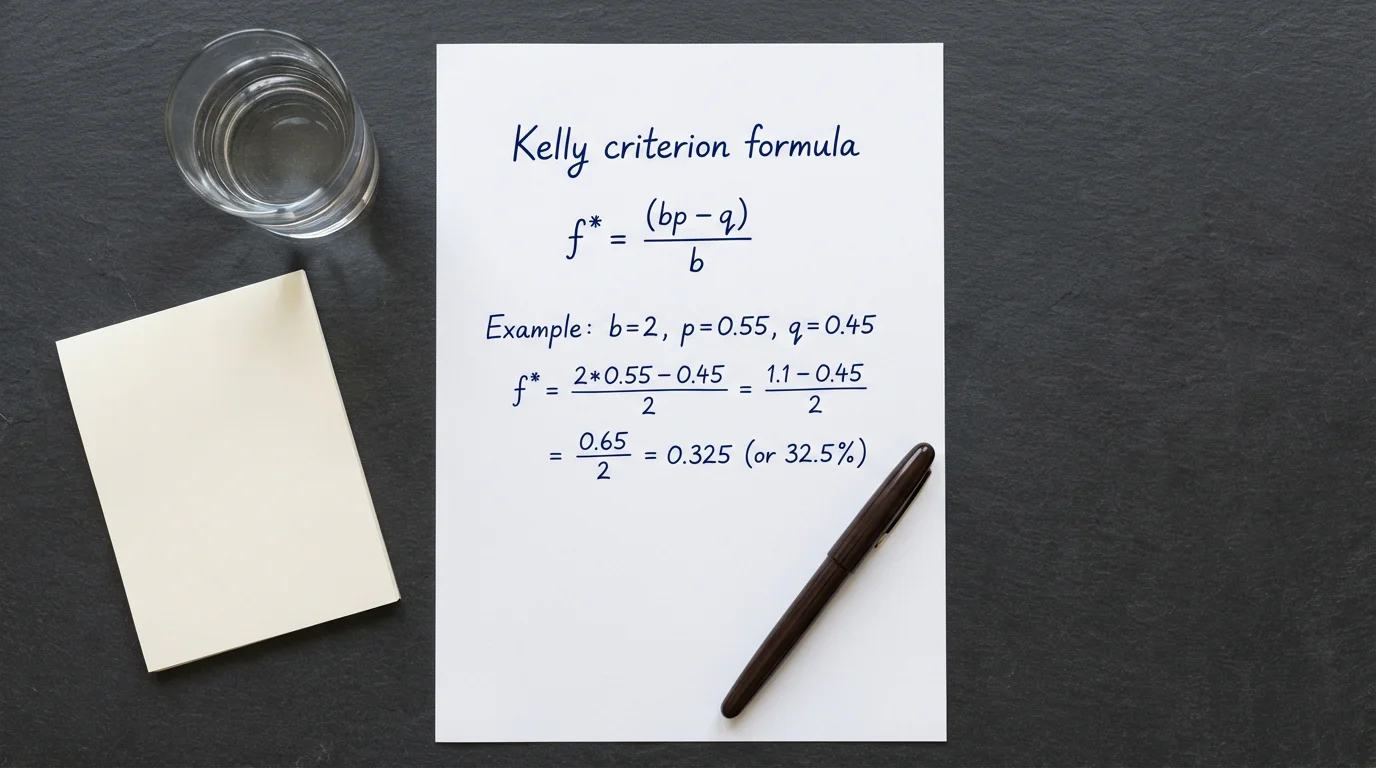 Kelly criterion formula
f* = (bp − q) / b
Example: b=2, p=0.55, q=0.45
f* = 2*0.55−0.45 / 2 = 1.1−0.45 / 2
= 0.65 / 2 = 0.325 (or 32.5%)